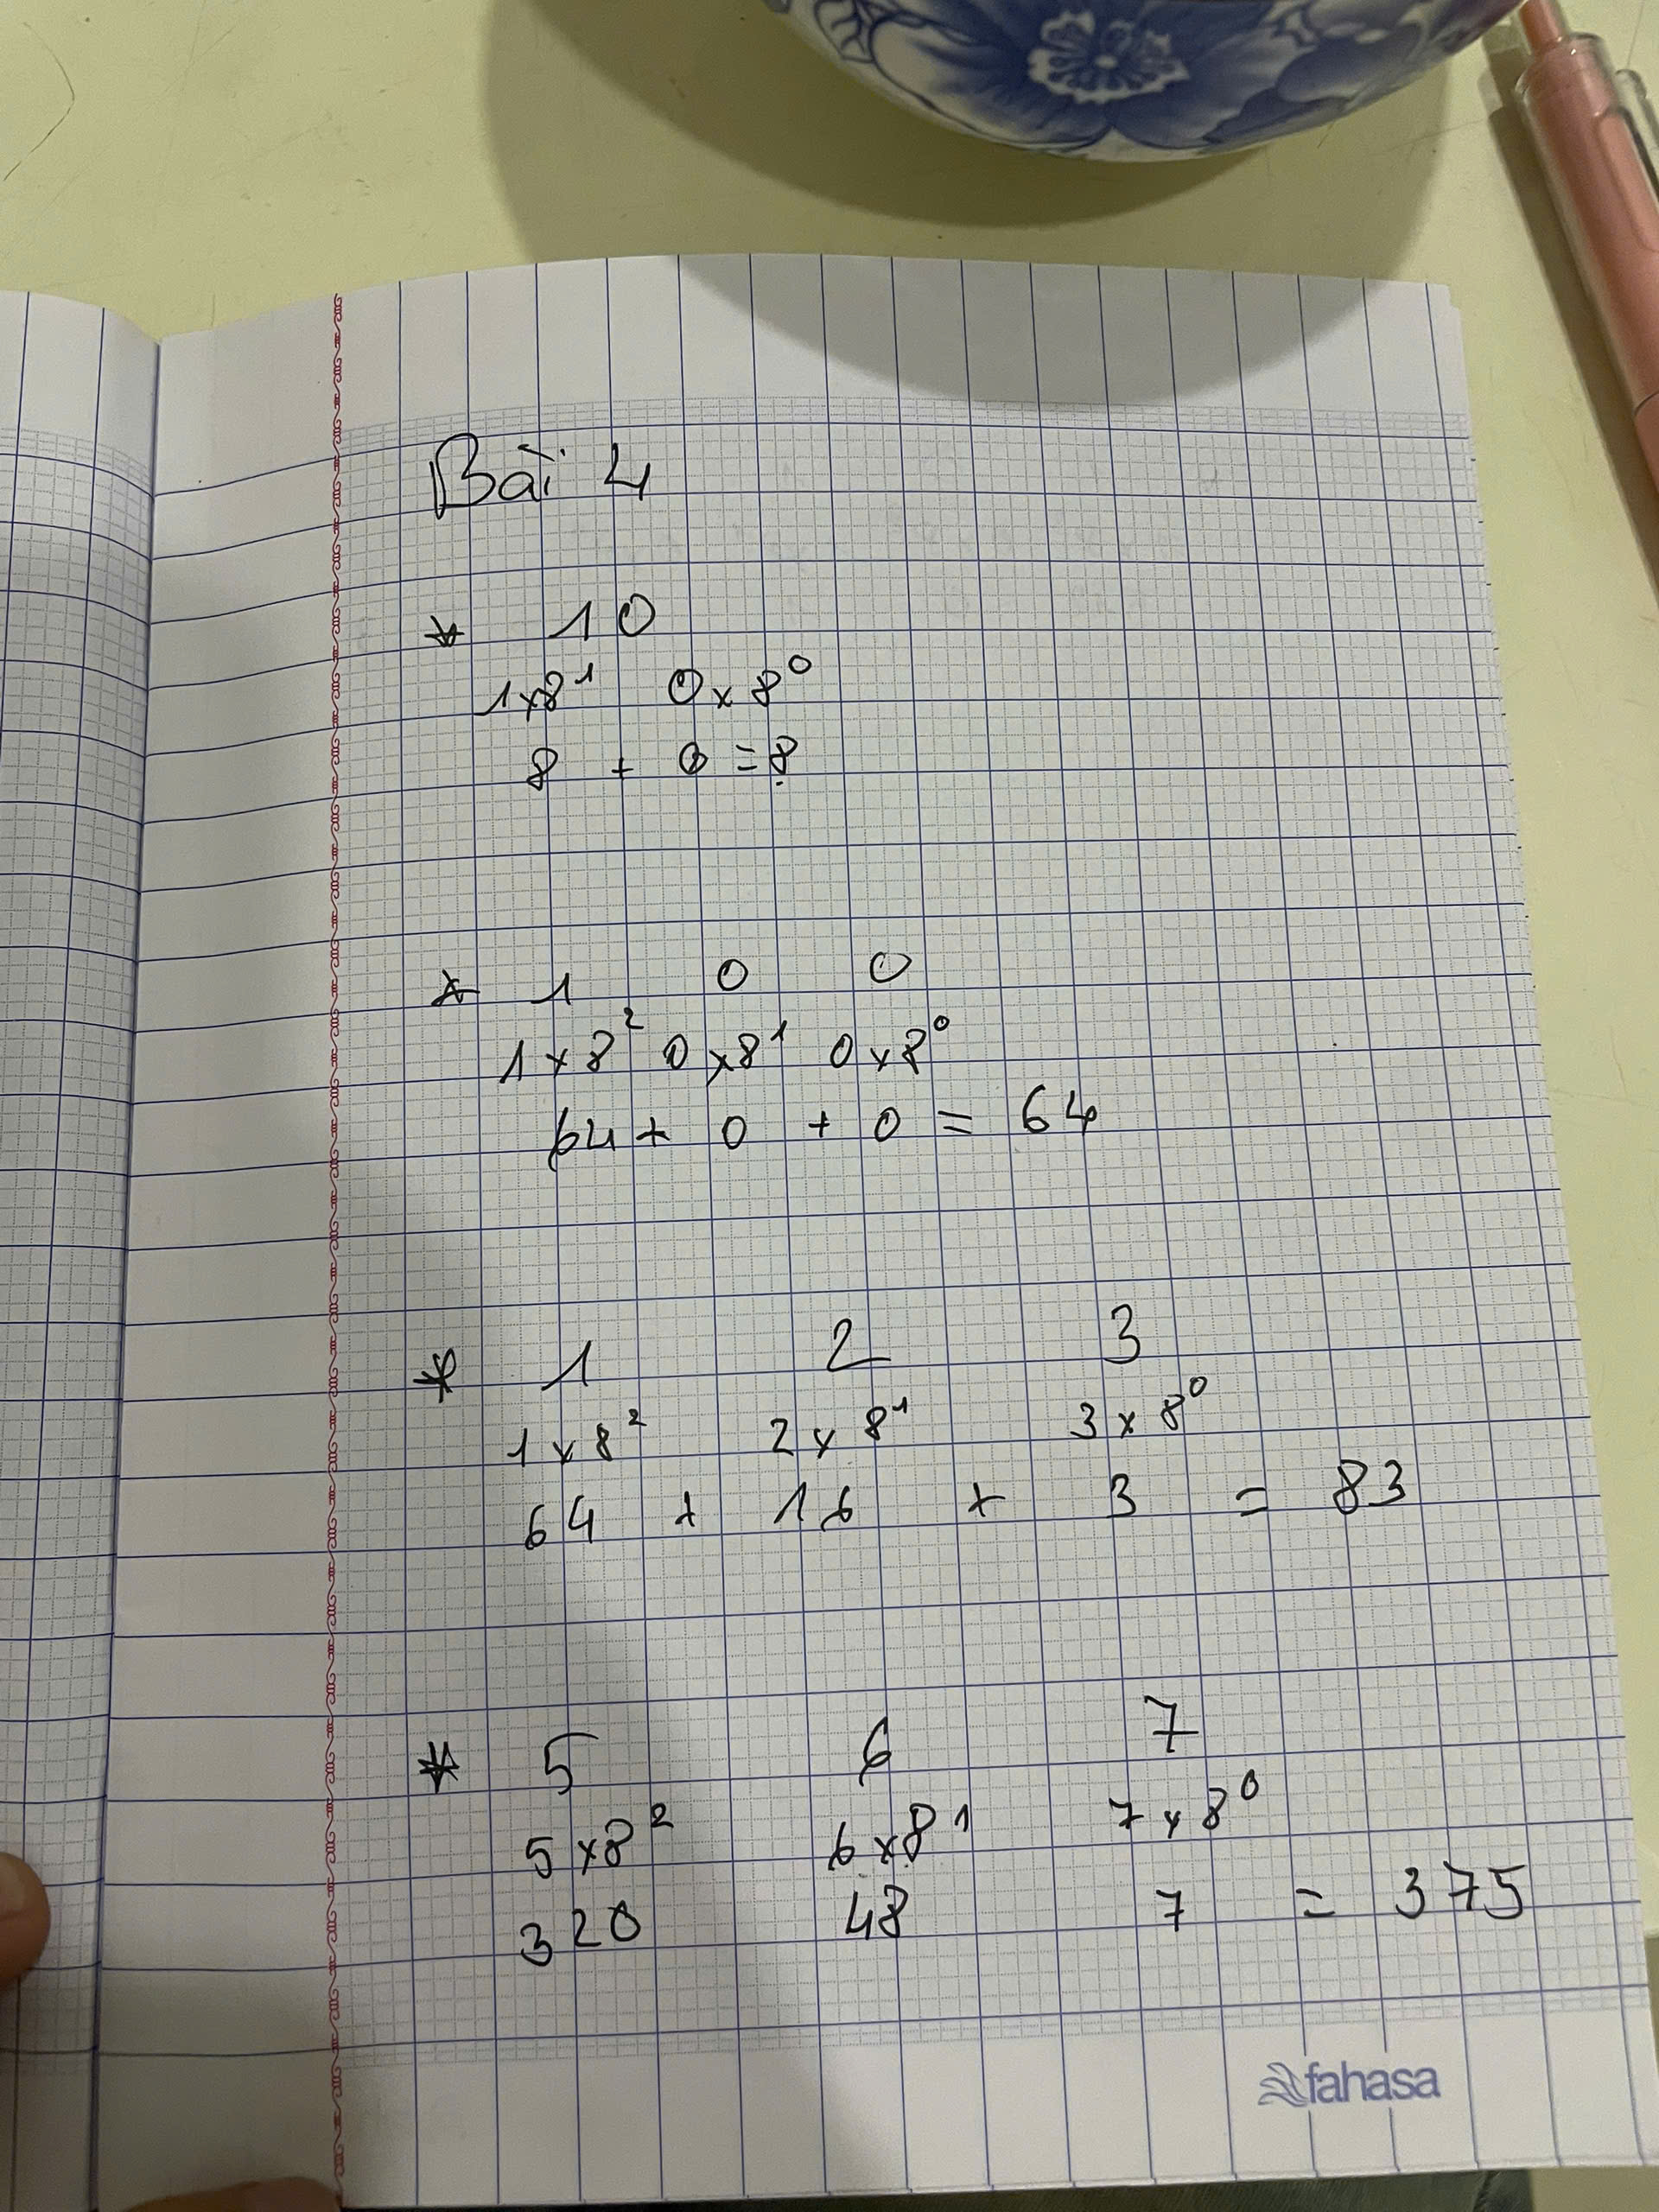 Bài 4
* 10
1x8¹ 0x8⁰
8 + 0 = 8
* 1 0 0
1x8² 0x8¹ 0x8⁰
64 + 0 + 0 = 64
* 1 2 3
1x8² 2x8¹ 3x8⁰
64 + 16 + 3 = 83
* 5 6 7
5x8² 6x8¹ 7x8⁰
320 48 7 = 375
fahasa